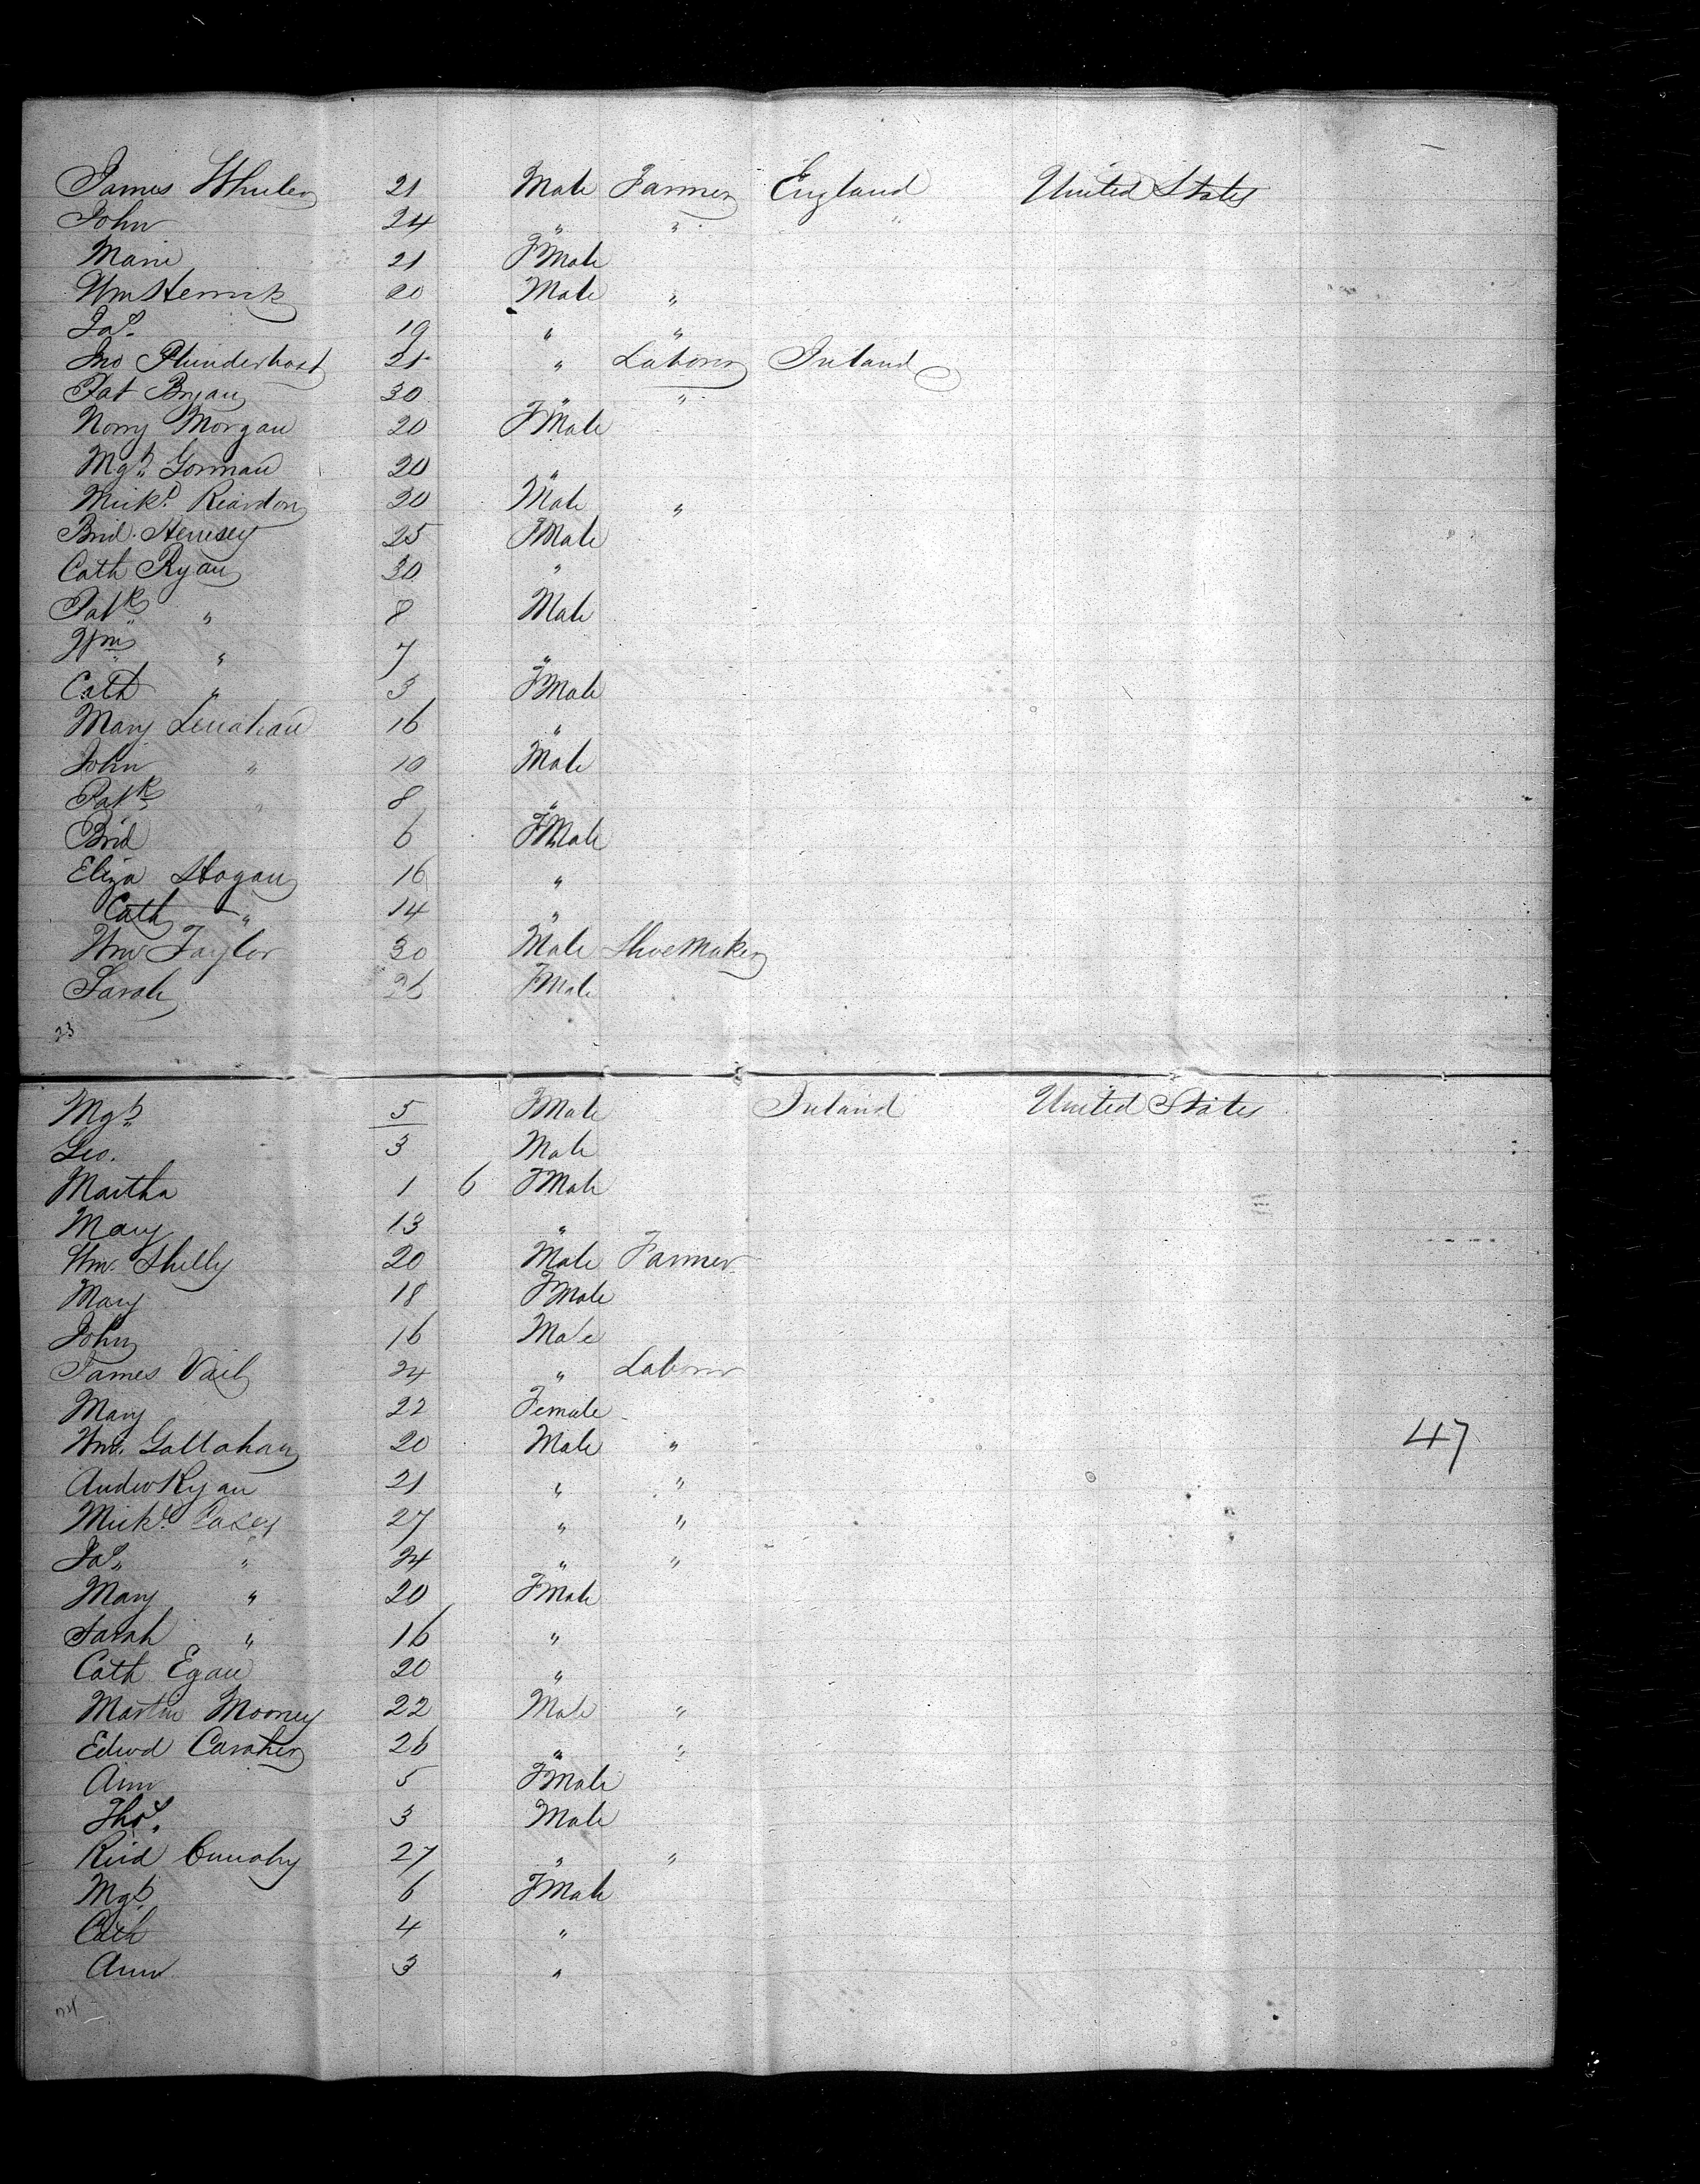 James Wheeler 21 Male Farmer England United States
John 24 " " "
Marie 21 FMale
Wm Herrick 20 Male "
Jas. 19 " "
Jno 21 " Laborer Ireland
Pat Bryan 30 " "
Norry Morgan 20 FMale
Mgt. Gorman 20 "
Mickl. Reardon 20 Male "
Brid. Hennesey 25 FMale
Cath Ryan 30 "
Patk " 8 Male
Wm " 7 "
Cath " 3 FMale
Mary Lenahan 16 "
John " 10 Male
Patk " 8 "
Brid 6 FMale
Eliza Hogan 16 "
Cath " 14 "
Wm Taylor 30 Male ShoeMaker
Sarah 26 FMale
23
Mgt. 5 FMale Ireland United States
Geo. 3 Male
Martha 1 6 FMale
Mary 13 "
Wm. Shelly 20 Male Farmer
Mary 18 FMale
John 16 Male
James Vail 24 " Laborer
Mary 22 Female
Wm. Gallahan 20 Male " 47
Andw Ryan 21 " "
Mickl. Casey 27 " "
Jas. " 24 " "
Mary " 20 FMale
Sarah " 16 "
Cath Egan 20 "
Martin Mooney 22 Male "
Edwd Caraher 26 " "
Ann 5 FMale
Thos. 3 Male
Ricd 27 " "
Mgt. 6 FMale
Cath 4 "
Ann 3 "
24